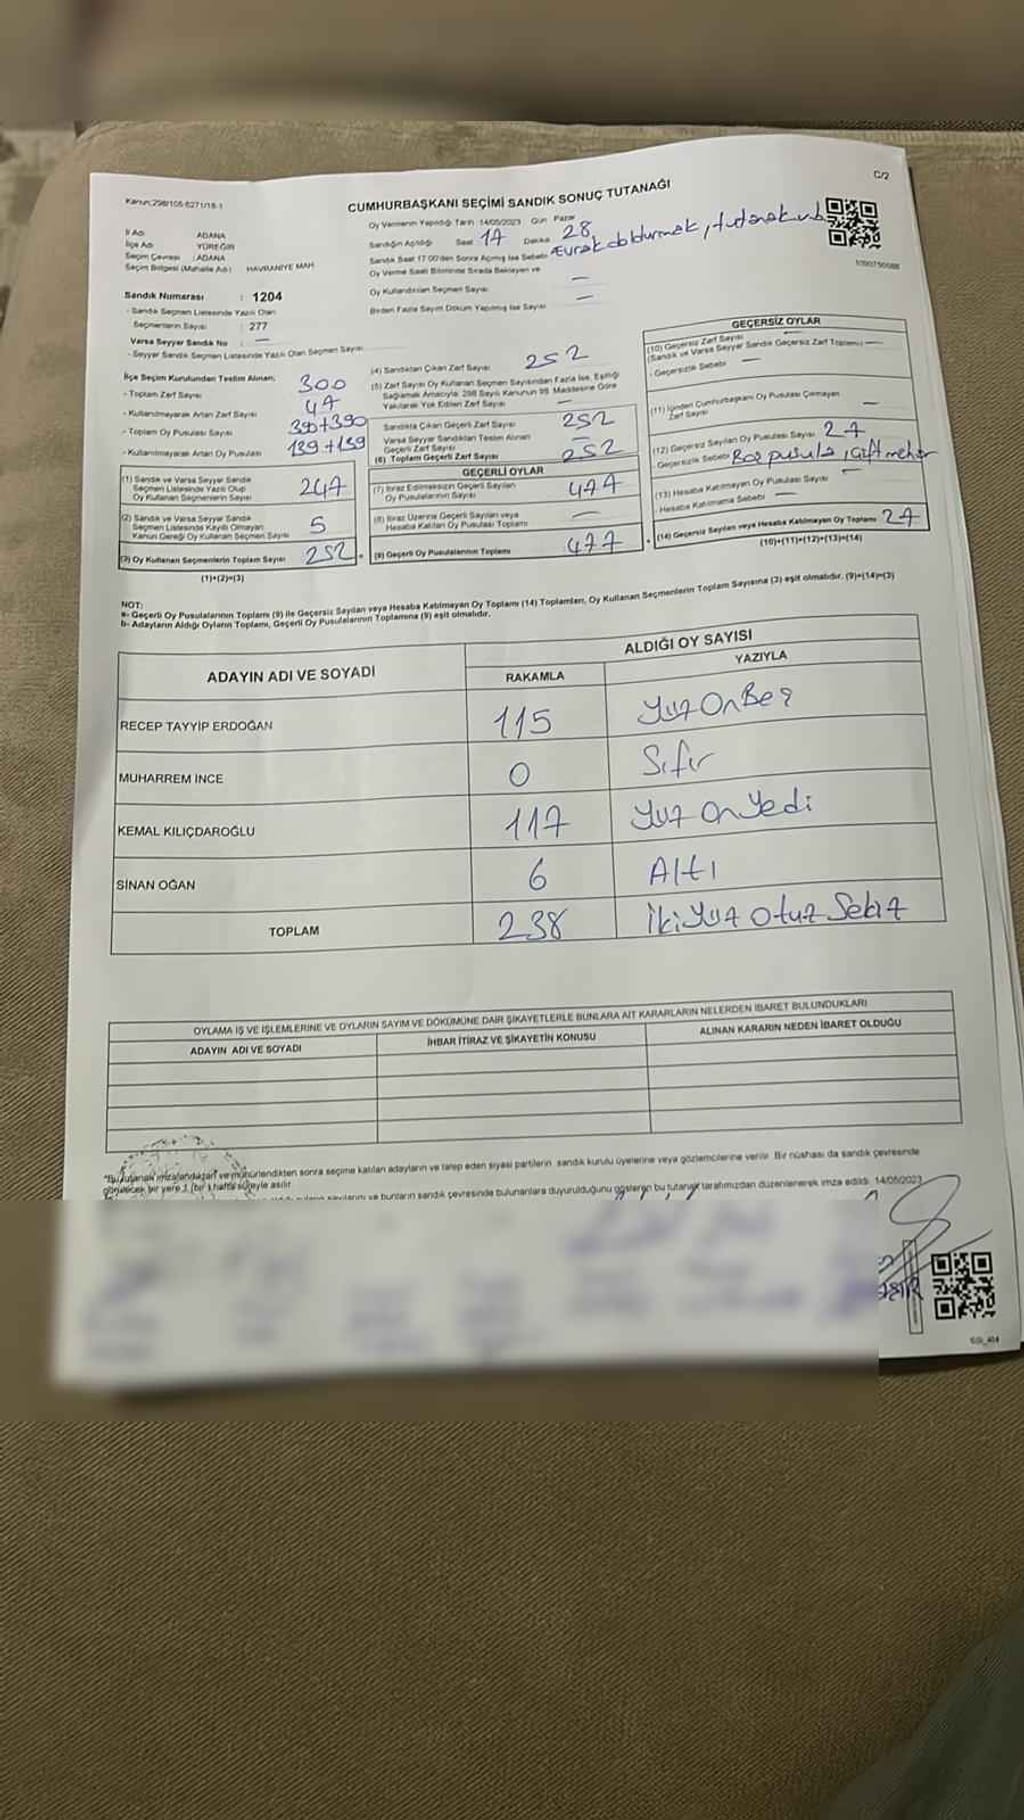 C/2
Kanun:298/105-6271/18-1
CUMHURBAŞKANI SEÇİMİ SANDIK SONUÇ TUTANAĞI
İl Adı ADANA
İlçe Adı YÜREĞİR
Seçim Çevresi : ADANA
Seçim Bölgesi (Mahalle Adı) HAVRANİYE MAH
Oy Vermenin Yapıldığı Tarih 14/05/2023 Gün Pazar
Sandığın Açıldığı Saat 17 Dakika 28
Sandık Saat 17:00'den Sonra Açılmış İse Sebebi Evrak doldurmak, tutanak vb
Oy Verme Saati Bitiminde Sırada Bekleyen ve
Oy Kullandırılan Seçmen Sayısı —
Birden Fazla Sayım Döküm Yapılmış İse Sayısı —
Sandık Numarası : 1204
- Sandık Seçmen Listesinde Yazılı Olan
Seçmenlerin Sayısı : 277
Varsa Seyyar Sandık No : —
- Seyyar Sandık Seçmen Listesinde Yazılı Olan Seçmen Sayısı
İlçe Seçim Kurulundan Teslim Alınan;
- Toplam Zarf Sayısı 300
- Kullanılmayarak Artan Zarf Sayısı 47
- Toplam Oy Pusulası Sayısı 390+390
- Kullanılmayarak Artan Oy Pusulası 139+139
(1) Sandık ve Varsa Seyyar Sandık
Seçmen Listesinde Yazılı Olup
Oy Kullanan Seçmenlerin Sayısı 247
(2) Sandık ve Varsa Seyyar Sandık
Seçmen Listesinde Kayıtlı Olmayan
Kanun Gereği Oy Kullanan Seçmen Sayısı 5
(3) Oy Kullanan Seçmenlerin Toplam Sayısı 252
(1)+(2)=(3)
(4) Sandıktan Çıkan Zarf Sayısı 252
(5) Zarf Sayısı Oy Kullanan Seçmen Sayısından Fazla İse, Eşitliği
Sağlamak Amacıyla; 298 Sayılı Kanunun 98. Maddesine Göre
Yakılarak Yok Edilen Zarf Sayısı —
Sandıkta Çıkan Geçerli Zarf Sayısı 252
Varsa Seyyar Sandıktan Teslim Alınan
Geçerli Zarf Sayısı —
(6) Toplam Geçerli Zarf Sayısı 252
GEÇERLİ OYLAR
(7) İtiraz Edilmeksizin Geçerli Sayılan
Oy Pusulalarının Sayısı 477
(8) İtiraz Üzerine Geçerli Sayılan veya
Hesaba Katılan Oy Pusulası Toplamı —
(9) Geçerli Oy Pusulalarının Toplamı 477
GEÇERSİZ OYLAR
(10) Geçersiz Zarf Sayısı —
(Sandık ve Varsa Seyyar Sandık Geçersiz Zarf Toplamı) —
- Geçersizlik Sebebi —
(11) İçinden Cumhurbaşkanı Oy Pusulası Çıkmayan
Zarf Sayısı —
(12) Geçersiz Sayılan Oy Pusulası Sayısı 27
- Geçersizlik Sebebi Boş pusula, çift mühür
(13) Hesaba Katılmayan Oy Pusulası Sayısı —
- Hesaba Katılmama Sebebi —
(14) Geçersiz Sayılan veya Hesaba Katılmayan Oy Toplamı 27
(10)+(11)+(12)+(13)=(14)
NOT:
a- Geçerli Oy Pusulalarının Toplamı (9) ile Geçersiz Sayılan veya Hesaba Katılmayan Oy Toplamı (14) Toplamları, Oy Kullanan Seçmenlerin Toplam Sayısına (3) eşit olmalıdır. (9)+(14)=(3)
b- Adayların Aldığı Oyların Toplamı, Geçerli Oy Pusulalarının Toplamına (9) eşit olmalıdır.
ADAYIN ADI VE SOYADI ALDIĞI OY SAYISI
RAKAMLA YAZIYLA
RECEP TAYYİP ERDOĞAN 115 Yüz On Beş
MUHARREM İNCE 0 Sıfır
KEMAL KILIÇDAROĞLU 117 Yüz On Yedi
SİNAN OĞAN 6 Altı
TOPLAM 238 İki Yüz Otuz Sekiz
OYLAMA İŞ VE İŞLEMLERİNE VE OYLARIN SAYIM VE DÖKÜMÜNE DAİR ŞİKAYETLERLE BUNLARA AİT KARARLARIN NELERDEN İBARET BULUNDUKLARI
ADAYIN ADI VE SOYADI İHBAR İTİRAZ VE ŞİKAYETİN KONUSU ALINAN KARARIN NEDEN İBARET OLDUĞU
"Bu tutanak imzalandıktan ve mühürlendikten sonra seçime katılan adayların ve talep eden siyasi partilerin sandık kurulu üyelerine veya gözlemcilerine verilir. Bir nüshası da sandık çevresinde
görülecek bir yere 1 (bir) hafta süreyle asılır.
sayılarını ve bunların sandık çevresinde bulunanlara duyurulduğunu gösteren bu tutanak tarafımızdan düzenlenerek imza edildi. 14/05/2023